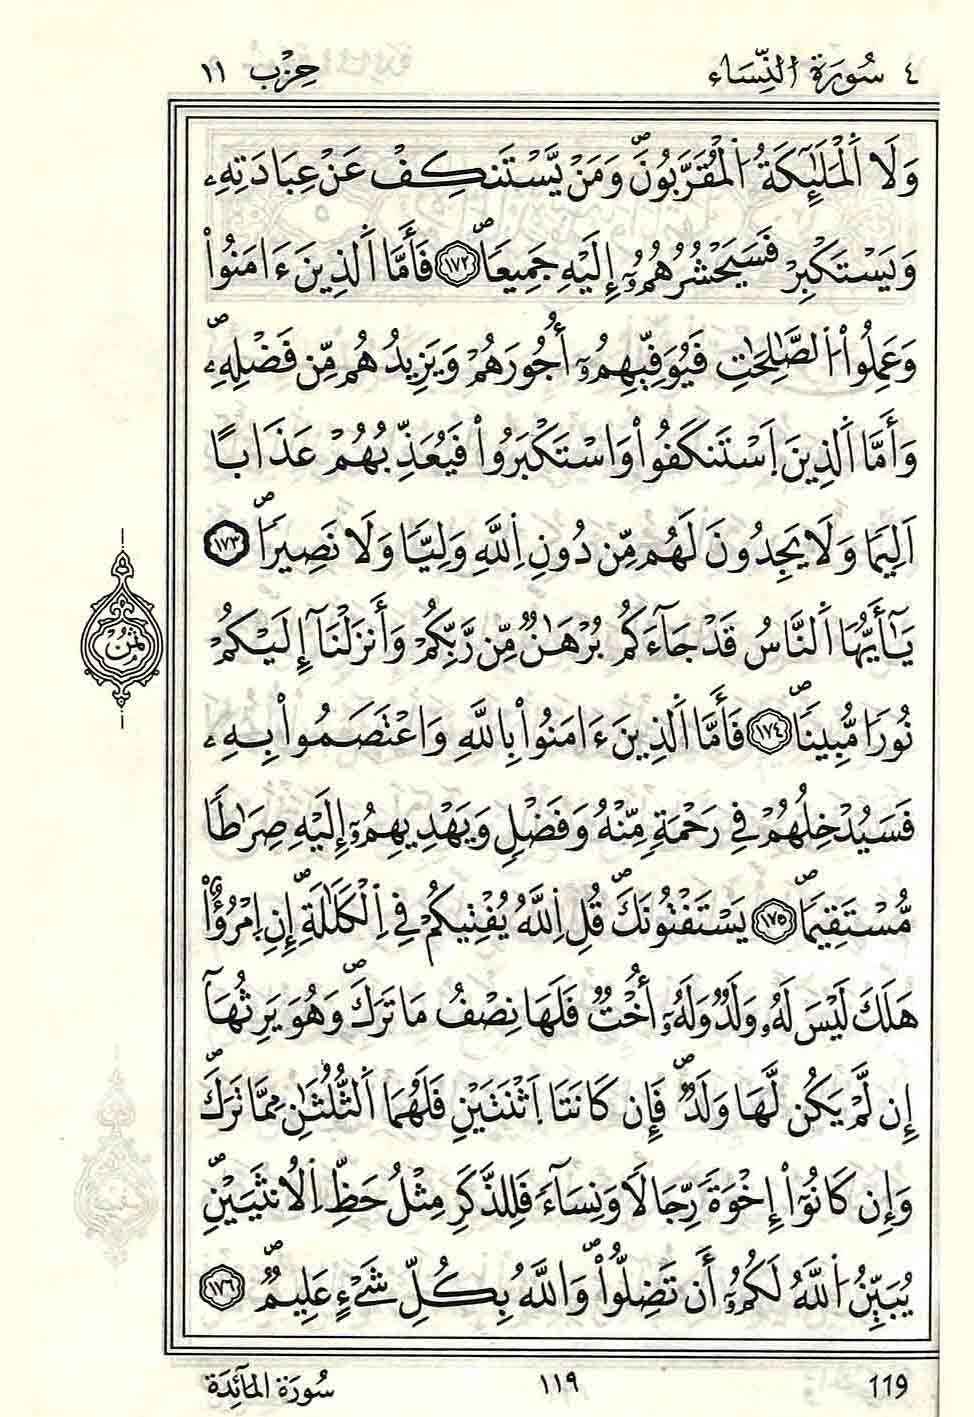 ٤ سُورَةُ النِّسَاء حِزْب ١١
وَلَا اَ۬لْمَلَٰٓئِكَةُ اُ۬لْمُقَرَّبُونَۖ وَمَنْ يَّسْتَنكِفْ عَنْ عِبَادَتِهِۦ
وَيَسْتَكْبِرْ فَسَيَحْشُرُهُمُۥٓ إِلَيْهِ جَمِيعاٗۖ ١٧٢ فَأَمَّا اَ۬لذِينَ ءَامَنُواْ
وَعَمِلُواْ اُ۬لصَّٰلِحَٰتِ فَيُوَفِّيهِمُۥٓ أُجُورَهُمْ وَيَزِيدُهُم مِّن فَضْلِهِۦۖ
وَأَمَّا اَ۬لذِينَ اَ۪سْتَنكَفُواْ وَاسْتَكْبَرُواْ فَيُعَذِّبُهُمْ عَذَاباً
اَلِيماٗ وَلَا يَجِدُونَ لَهُم مِّن دُونِ اِ۬للَّهِ وَلِيّاٗ وَلَا نَصِيراٗۖ ١٧٣
يَٰٓأَيُّهَا اَ۬لنَّاسُ قَدْ جَآءَكُم بُرْهَٰنٞ مِّن رَّبِّكُمْ وَأَنزَلْنَآ إِلَيْكُمْ
نُوراٗ مُّبِيناٗۖ ١٧٤ فَأَمَّا اَ۬لذِينَ ءَامَنُواْ بِاللَّهِ وَاعْتَصَمُواْ بِهِۦ
فَسَيُدْخِلُهُمْ فِي رَحْمَةٖ مِّنْهُ وَفَضْلٖ وَيَهْدِيهِمُۥٓ إِلَيْهِ صِرَٰطاٗ
مُّسْتَقِيماٗۖ ١٧٥ يَسْتَفْتُونَكَۖ قُلِ اِ۬للَّهُ يُفْتِيكُمْ فِي اِ۬لْكَلَٰلَةِۖ إِنِ اِ۪مْرُؤٌاْ
هَلَكَ لَيْسَ لَهُۥ وَلَدٞ وَلَهُۥٓ أُخْتٞ فَلَهَا نِصْفُ مَا تَرَكَۖ وَهُوَ يَرِثُهَآ
إِن لَّمْ يَكُن لَّهَا وَلَدٞۖ فَإِن كَانَتَا اَ۪ثْنَتَيْنِ فَلَهُمَا اَ۬لثُّلُثَٰنِ مِمَّا تَرَكَۖ
وَإِن كَانُوٓاْ إِخْوَةٗ رِّجَالاٗ وَنِسَآءٗ فَلِلذَّكَرِ مِثْلُ حَظِّ اِ۬لُانثَيَيْنِۖ
يُبَيِّنُ اُ۬للَّهُ لَكُمُۥٓ أَن تَضِلُّواْۖ وَاللَّهُ بِكُلِّ شَےْءٍ عَلِيمٞۖ ١٧٦
ثُمُن
119 ١١٩ سُورَةُ المَآئِدَة